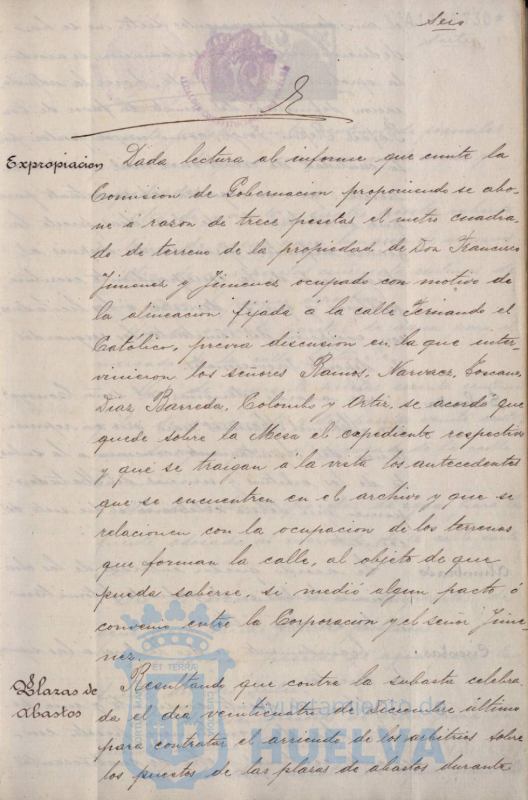 Seis
Expropiacion
Dada lectura al informe que emite la
Comision de Gobernacion proponiendo se abo-
ne á razon de trece pesetas el metro cuadra-
do de terreno de la propiedad de Don Francisco
Jimenez y Jimenez ocupado con motivo de
la alineacion fijada á la calle Fernando el
Católico, previa discusion en la que inter-
vinieron los señores Ramos, Narvaez, Toscano,
Diaz Barreda, Colombo y Ortiz, se acordó que
quede sobre la Mesa el expediente respectivo
y que se traigan á la vista los antecedentes
que se encuentren en el archivo y que se
relacionen con la ocupacion de los terrenos
que forman la calle, al objeto de que
pueda saberse, si medió algun pacto ó
convenio entre la Corporacion y el señor Jime-
nez.
Plazas de
Abastos
Resultando que contra la subasta celebra-
da el dia veinticuatro de diciembre último
para contratar el arriendo de los arbitrios sobre
los puestos de las plazas de abastos durante
ET TERRA
Ayuntamiento de
HUELVA